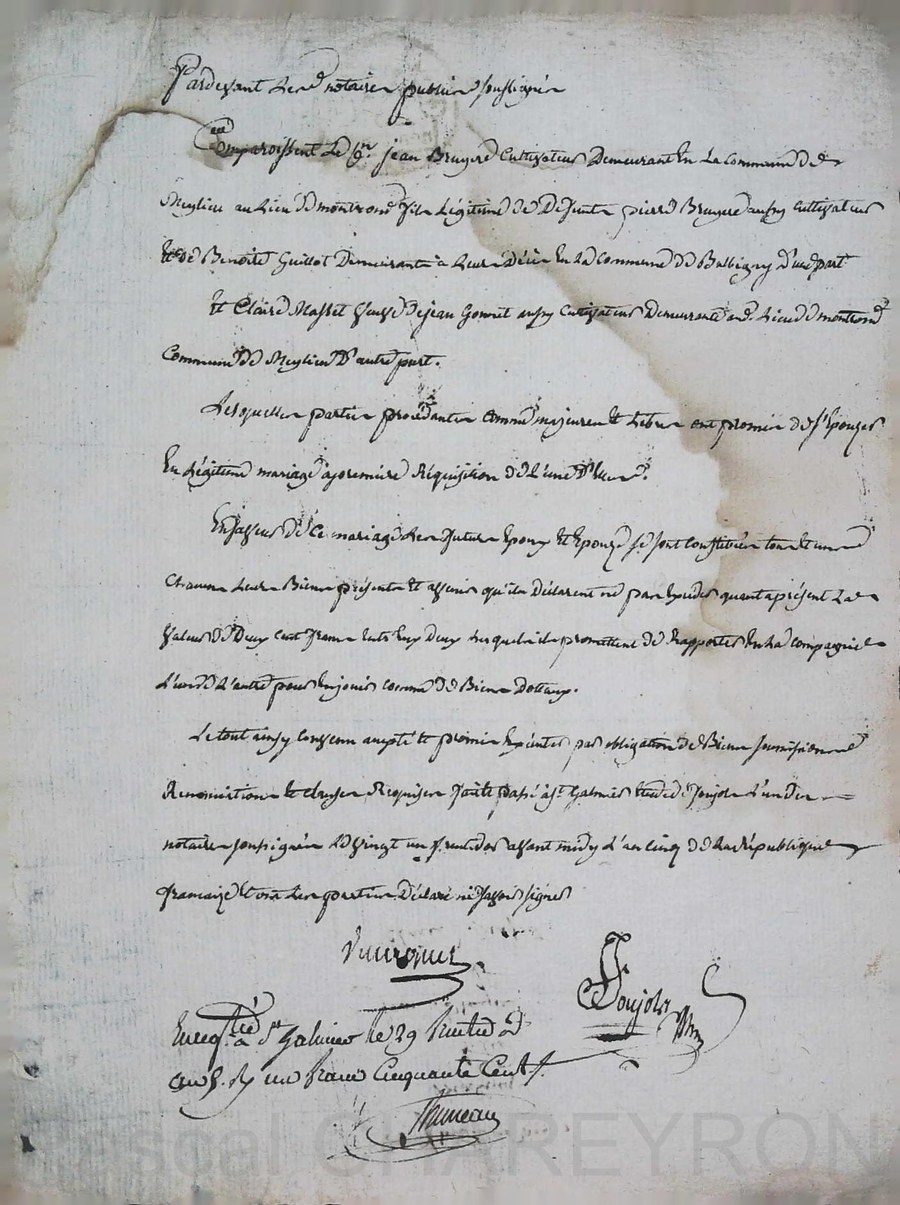 Pardevant Les notaires publics soussignés
Comparoissent le Sr. jean Bruyere Cultivateur Demeurant En La Commune de
Meylieu au Lieu de montrond fils Légitime de Defunts pierre Bruyere aussy Cultivateur
Et de Benoite Guillot Demeurants à Leurs Décès En La Commune de Balbigny d'une part
Et Claire Masset Veuve de jean Gonnet aussy Cultivateur Demeurante Lieu de montrond
Commune de Meylieu D'autre part.
Lesquelles parties procédantes comme majeures Et Libres ont promis de s'Epouser
En Légitime mariage à première Réquisition de L'une D'elles.
En faveur de Ce mariage Les futurs Epoux Et Epouse se sont Constitués tous Et un
Chacuns Leurs Biens présents Et avenir qu'ils Déclarent ne pas Exceder quant à présent La
Valeur de Deux Cent francs Entr'Eux Deux Lesquels ils promettent de Rapporter En La compagnie
L'un de L'autre pour En jouir comme de Biens Dotaux.
Le tout ainsy Convenu accepté Et promis Exécuter par obligation de Biens soumissions
Renonciations Et clauses Requises fait Et passé à St Galmier Etude de Soujols L'un des
notaires soussignés Le Vingt un fructidor avant midy L'an Cinq de La République
française Et ont Les parties Déclaré ne savoir signer
Soujols
Enregtré à St Galmier le 29 fructidor
an 5. R/ un franc Cinquante Cent s.
Pascal CHAREYRON